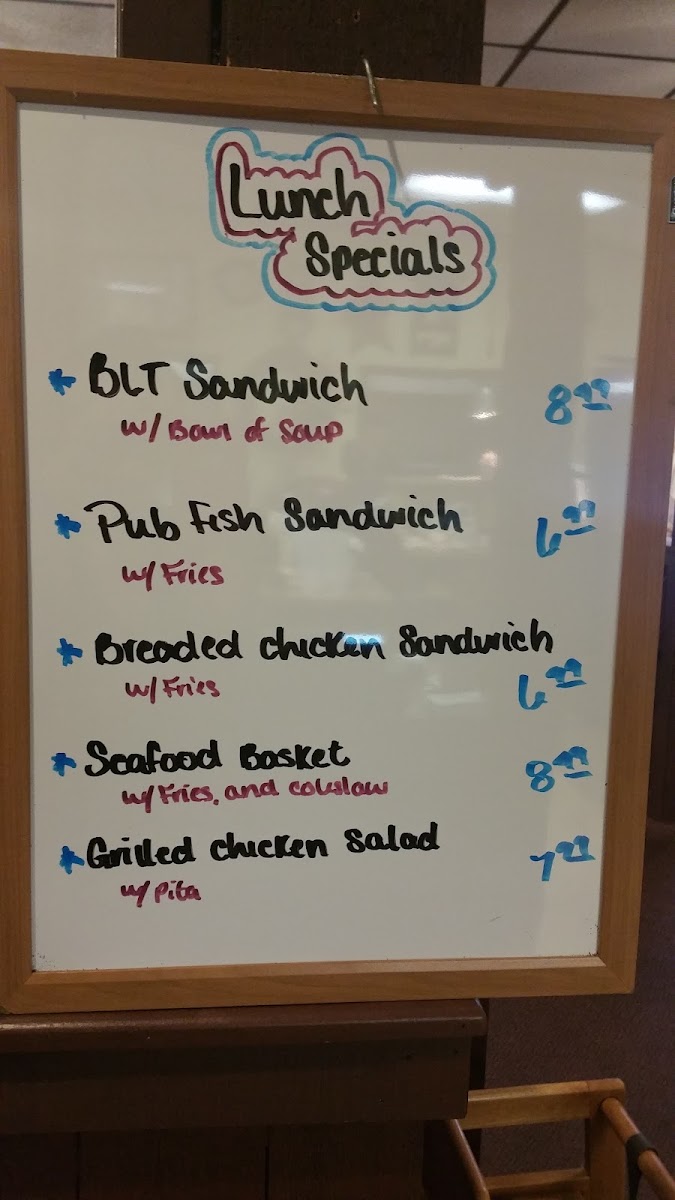 Lunch
Specials
* BLT Sandwich 8.99
w/ Bowl of Soup
* Pub Fish Sandwich 6.99
w/ Fries
* Breaded Chicken Sandwich
w/ Fries 6.99
* Seafood Basket 8.99
w/ Fries, and coleslaw
* Grilled Chicken Salad 7.99
w/ Pita